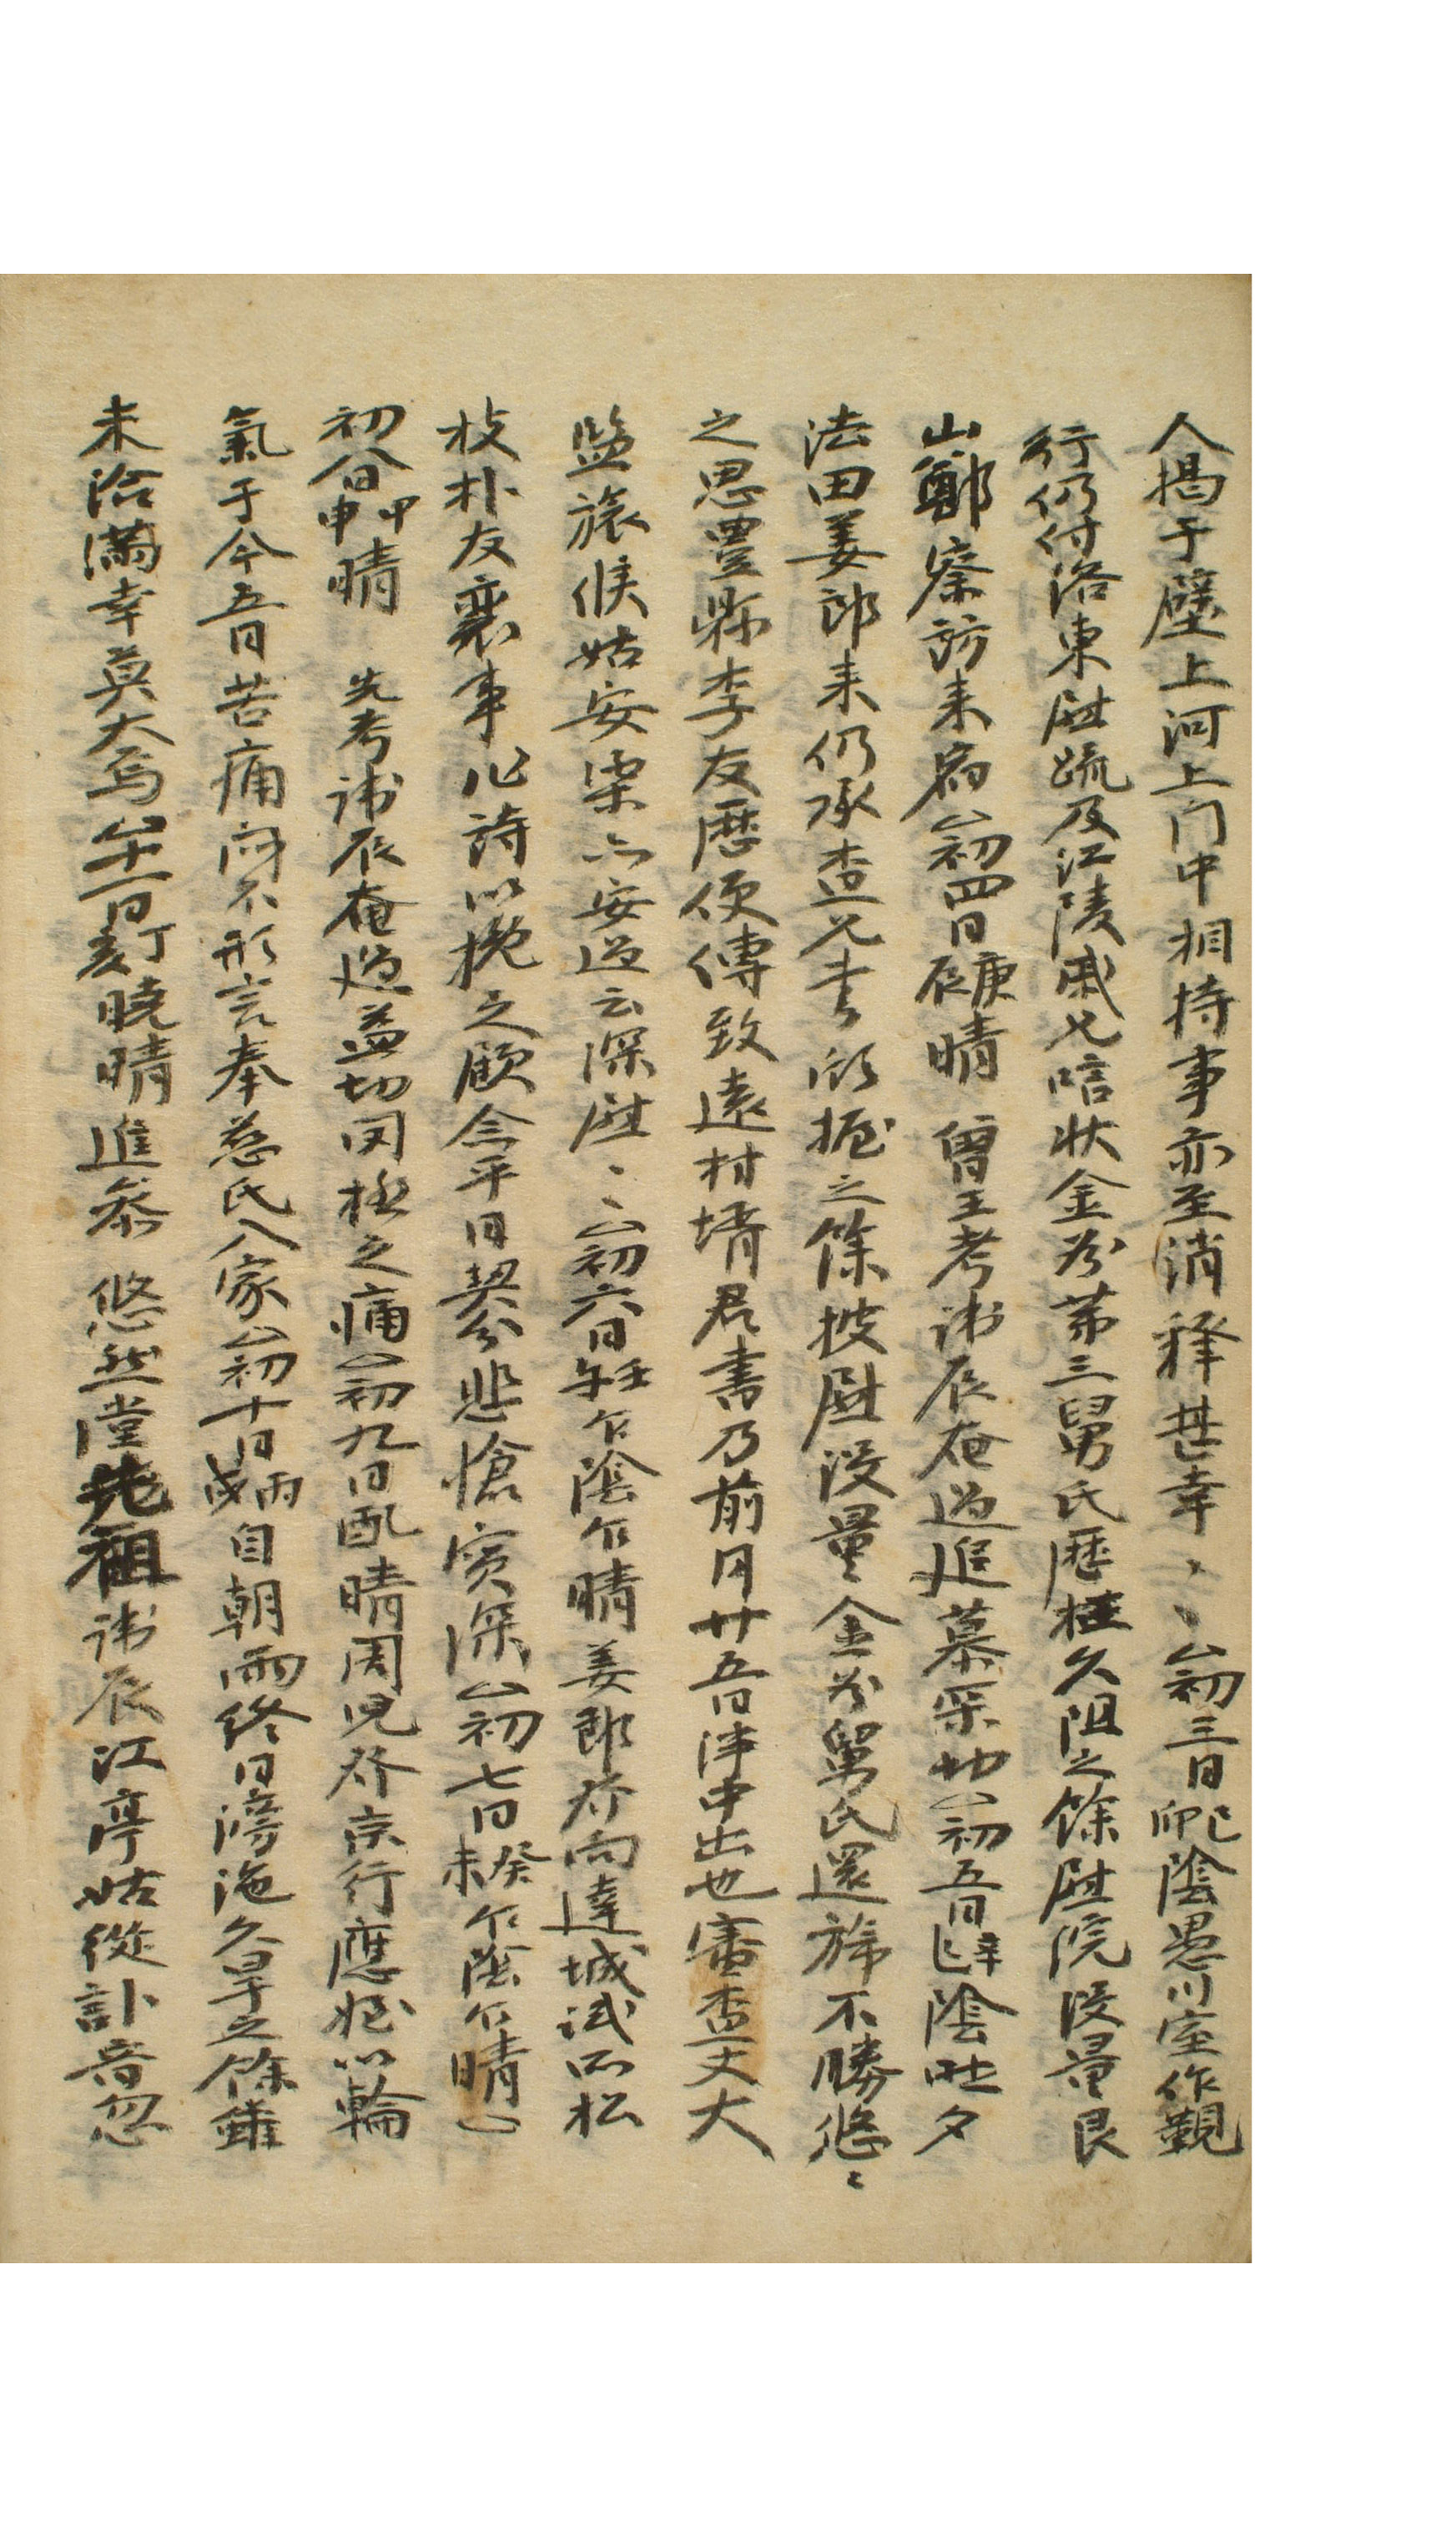 人揭于壁上河上门中相持事亦至消释甚幸〻〻初三日己卯陰愚川室作覲
行仍付洛東慰疏及江陵戚兄唁状金谷第三舅氏歴枉久阻之餘慰浣沒量艮
山鄭察訪来宿初四日庚辰晴 曾王考諱辰奄過追慕采切初五日辛巳陰晡夕
法田姜郎来仍承査兄書欣握之餘披慰沒量金谷舅氏還旆不勝悠〻
之思豊縣李友歴便傳致遠村壻君書乃前月廿五日泮中出也審査丈大
監旅候姑安渠亦安過云深慰〻〻初六日壬午乍陰乍晴姜郎发向達城試所松
枝朴友襄事作詩以挽之顧念平日契分悲愴实深初七日癸未乍陰乍晴
初八日甲申晴 先考諱辰奄過益切罔極之痛初九日乙酉晴周児发京行應姪以輪
氣于今五日苦痛向不形言奉慈氏入家初十日丙戌自朝雨終日滂沱久旱之餘雖
未洽滿幸莫大焉十一日丁亥晓晴進参 悠然堂先祖諱辰江亭姑從訃音忽